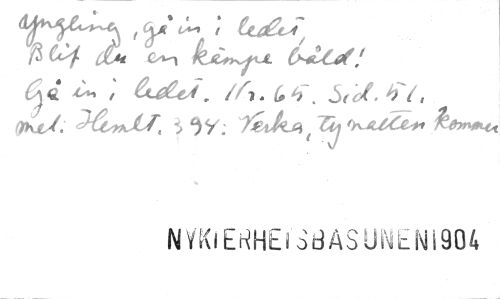 Yngling, gå in i ledet,
Blif du en kämpe båld!
Gå in i ledet. Nr. 65. Sid. 51.
mel: Hemlt. 394: Verka, ty natten kommer
NYKTERHETSBASUNEN 1904